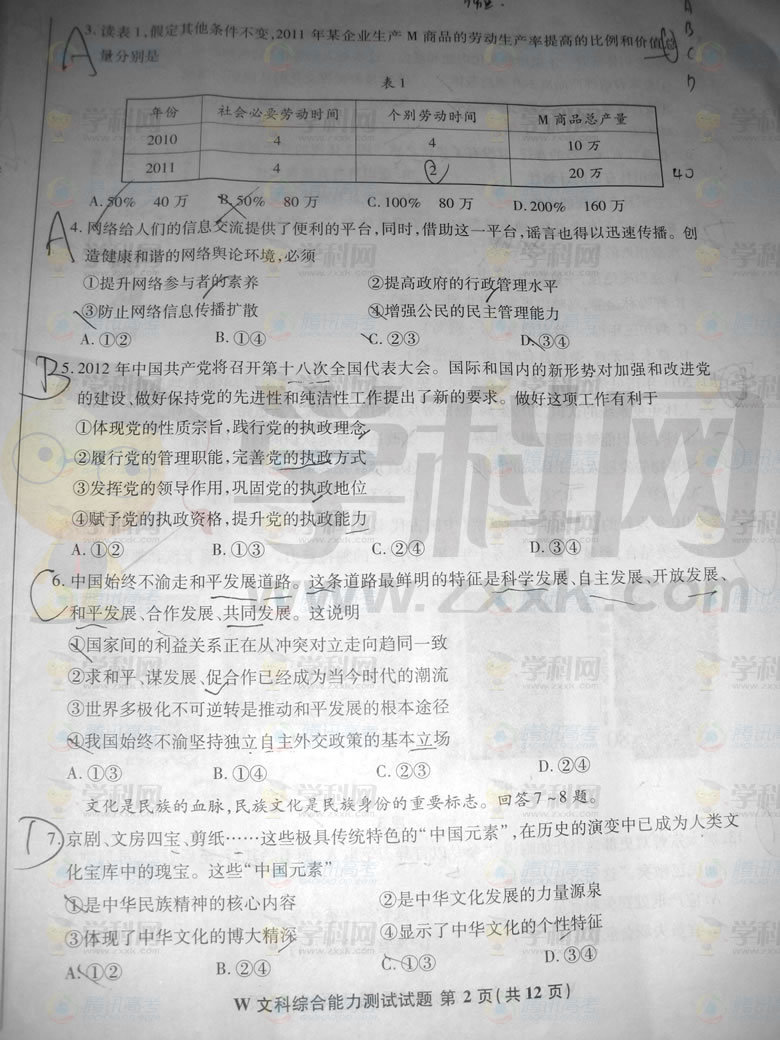 3.读表1,假定其他条件不变,2011年某企业生产M商品的劳动生产率提高的比例和价值总
量分别是
A
A
B
C
D
表1
年份 社会必要劳动时间 个别劳动时间 M商品总产量
2010 4 4 10万
2011 4 2 20万
40
A.50% 40万 B.50% 80万 C.100% 80万 D.200% 160万
A
4.网络给人们的信息交流提供了便利的平台,同时,借助这一平台,谣言也得以迅速传播。创
造健康和谐的网络舆论环境,必须
①提升网络参与者的素养 ②提高政府的行政管理水平
③防止网络信息传播扩散 ④增强公民的民主管理能力
A.①② B.①④ C.②③ D.③④
B
5.2012年中国共产党将召开第十八次全国代表大会。国际和国内的新形势对加强和改进党
的建设、做好保持党的先进性和纯洁性工作提出了新的要求。做好这项工作有利于
①体现党的性质宗旨,践行党的执政理念
②履行党的管理职能,完善党的执政方式
③发挥党的领导作用,巩固党的执政地位
④赋予党的执政资格,提升党的执政能力
A.①② B.①③ C.②④ D.③④
C
6.中国始终不渝走和平发展道路。这条道路最鲜明的特征是科学发展、自主发展、开放发展、
和平发展、合作发展、共同发展。这说明
①国家间的利益关系正在从冲突对立走向趋同一致
②求和平、谋发展、促合作已经成为当今时代的潮流
③世界多极化不可逆转是推动和平发展的根本途径
④我国始终不渝坚持独立自主外交政策的基本立场
A.①③ B.①④ C.②③ D.②④
文化是民族的血脉,民族文化是民族身份的重要标志。回答7~8题。
D
7.京剧、文房四宝、剪纸……这些极具传统特色的“中国元素”,在历史的演变中已成为人类文
化宝库中的瑰宝。这些“中国元素”
①是中华民族精神的核心内容 ②是中华文化发展的力量源泉
③体现了中华文化的博大精深 ④显示了中华文化的个性特征
A.①② B.②④ C.①③ D.③④
W文科综合能力测试试题 第2页(共12页)
学科网
www.zxxk.com
腾讯高考